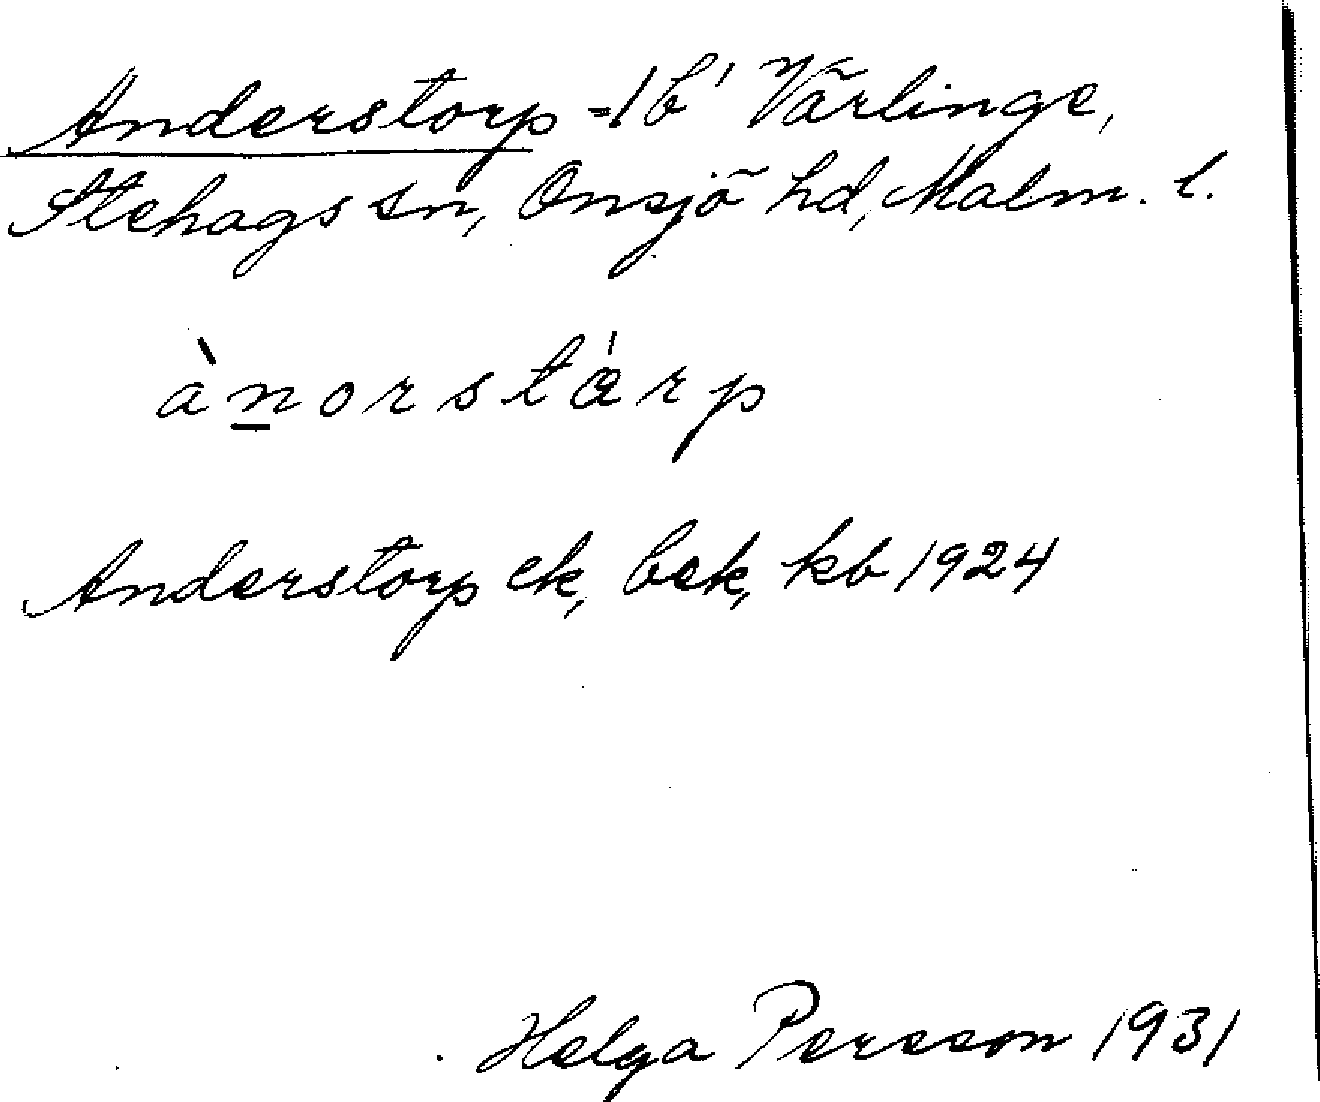 Anderstorp = 1b¹ Värlinge,
Stehags sn, Onsjö hd, Malm. l.
ànorstárp
Anderstorp ek, bek, kb 1924
Helga Persson 1931